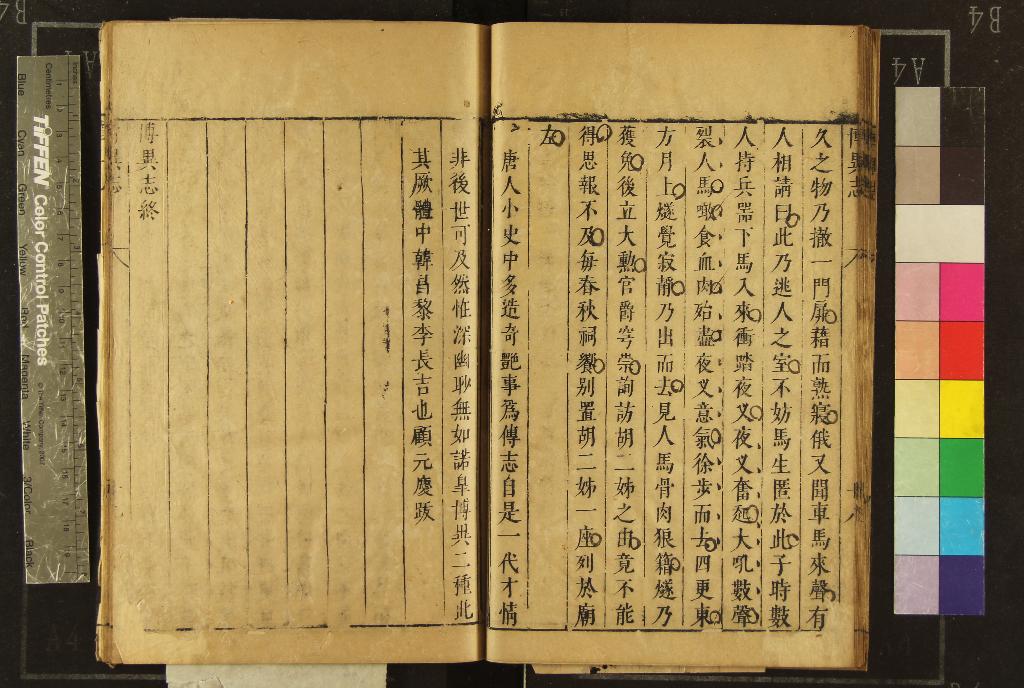 久之物乃撤一門扉藉而熟寢俄又聞車馬來聲有
人相請曰此乃逃人之室不妨馬生匿於此子時數
人持兵噐下馬入來衝踏夜叉夜叉奮起大吼數聲
裂人馬噉食血肉殆盡夜叉意氣徐步而去四更東
方月上燧覺寂靜乃出而去見人馬骨肉狼籍燧乃
獲免後立大勳官爵穹崇詢訪胡二姊之由竟不能
得思報不及每春秋祠饗别置胡二姊一座列於廟
左
唐人小史中多造奇艷事爲傳志自是一代才情
非後世可及然惟深幽耿無如諾皐博異二種此
其厥體中韓昌黎李長吉也顧元慶跋
博異志終
博異志
TIFFEN Color Control Patches
Centimetres
Inches
Blue
Cyan
Green
Yellow
Red
Magenta
White
3/Color
Black
B4
A4